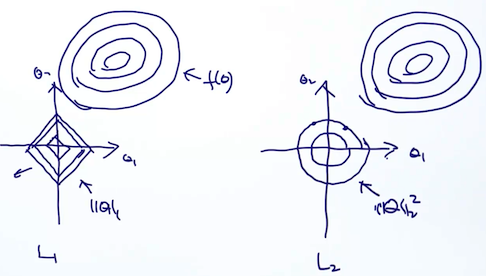 θ₂
f(θ)
θ₁
||θ||₁
L₁
θ₂
θ₁
||θ||₂²
L₂